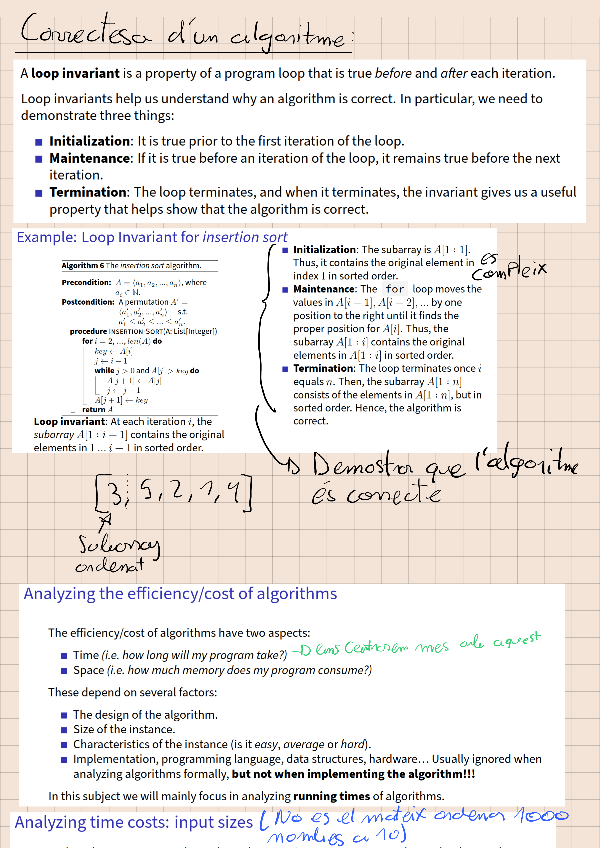 Correctesa d'un algoritme:
A loop invariant is a property of a program loop that is true before and after each iteration.
Loop invariants help us understand why an algorithm is correct. In particular, we need to
demonstrate three things:
■ Initialization: It is true prior to the first iteration of the loop.
■ Maintenance: If it is true before an iteration of the loop, it remains true before the next
iteration.
■ Termination: The loop terminates, and when it terminates, the invariant gives us a useful
property that helps show that the algorithm is correct.
Example: Loop Invariant for insertion sort
Algorithm 6 The insertion sort algorithm.
Precondition: A = (a₁, a₂, ..., aₙ), where
aᵢ ∈ ℕ.
Postcondition: A permutation A' =
(a'₁, a'₂, ..., a'ₙ) s.t.
a'₁ ≤ a'₂ ≤ ... ≤ a'ₙ.
procedure INSERTION-SORT(A: List[Integer])
for i = 2, ..., len(A) do
key ← A[i]
j ← i − 1
while j > 0 and A[j] > key do
A[j+1] ← A[j]
j ← j − 1
A[j + 1] ← key
return A
Loop invariant: At each iteration i, the
subarray A[1 : i − 1] contains the original
elements in 1 ... i − 1 in sorted order.
■ Initialization: The subarray is A[1 : 1].
Thus, it contains the original element in
index 1 in sorted order.
és
compleix
■ Maintenance: The for loop moves the
values in A[i − 1], A[i − 2], ... by one
position to the right until it finds the
proper position for A[i]. Thus, the
subarray A[1 : i] contains the original
elements in A[1 : i] in sorted order.
■ Termination: The loop terminates once i
equals n. Then, the subarray A[1 : n]
consists of the elements in A[1 : n], but in
sorted order. Hence, the algorithm is
correct.
→ Demostrar que l'algoritme
és correcte
[3, 5, 2, 1, 4]
Subarray
ordenat
Analyzing the efficiency/cost of algorithms
The efficiency/cost of algorithms have two aspects:
■ Time (i.e. how long will my program take?) → Ens centrarem mes amb aquest
■ Space (i.e. how much memory does my program consume?)
These depend on several factors:
■ The design of the algorithm.
■ Size of the instance.
■ Characteristics of the instance (is it easy, average or hard).
■ Implementation, programming language, data structures, hardware... Usually ignored when
analyzing algorithms formally, but not when implementing the algorithm!!!
In this subject we will mainly focus in analyzing running times of algorithms.
Analyzing time costs: input sizes (No es el mateix ordenar 1000
nombres a 10)